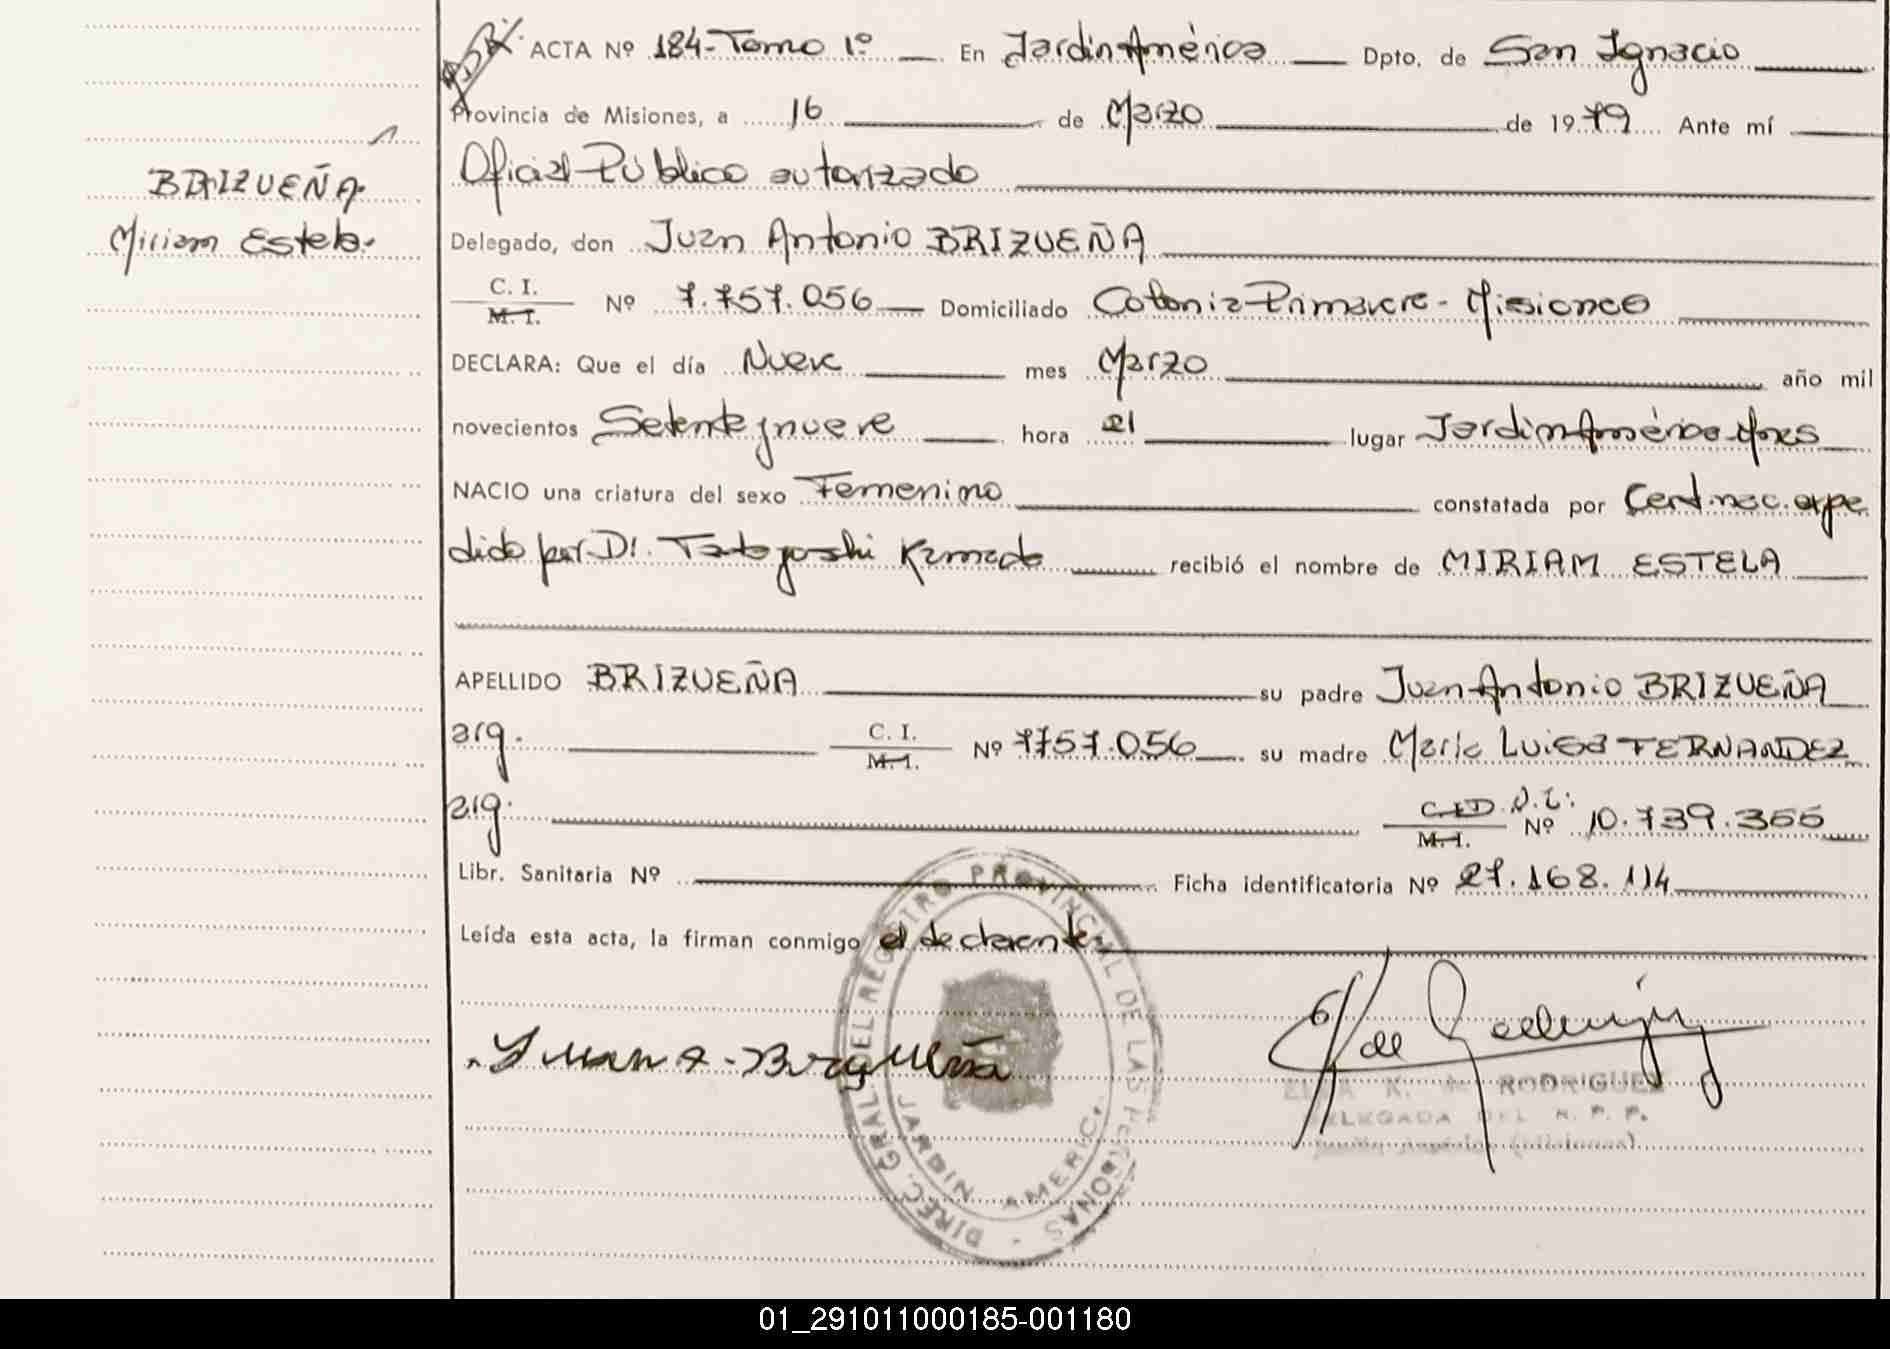 ACTA Nº 184-Tomo 1º En Jardin América Dpto. de San Ignacio
Provincia de Misiones, a 16 de Marzo de 1979 Ante mí
Oficial Público autorizado
BRIZUEÑA
Miriam Estela
Delegado, don Juan Antonio BRIZUEÑA
C. I.
M. I. Nº 7.757.056 Domiciliado Colonia Primavera - Misiones
DECLARA: Que el día Nueve mes Marzo año mil
novecientos Setenta y nueve hora 21 lugar Jardin América Mnes
NACIO una criatura del sexo Femenino constatada por Cert. nac. expe
dido por Dr. recibió el nombre de MIRIAM ESTELA
APELLIDO BRIZUEÑA su padre Juan Antonio BRIZUEÑA
arg. C. I.
M. I. Nº 7757.056 su madre Maria Luisa FERNANDEZ
arg. M. I. Nº 10.739.355
Libr. Sanitaria Nº Ficha identificatoria Nº 27.168.114
Leída esta acta, la firman conmigo el declarante
DIREC. GRAL. DEL REGISTRO PROVINCIAL DE LAS PERSONAS
JARDIN AMERICA
Juan A. Brizueña
RODRIGUEZ
DELEGADA DEL R. P. P.
01_291011000185-001180